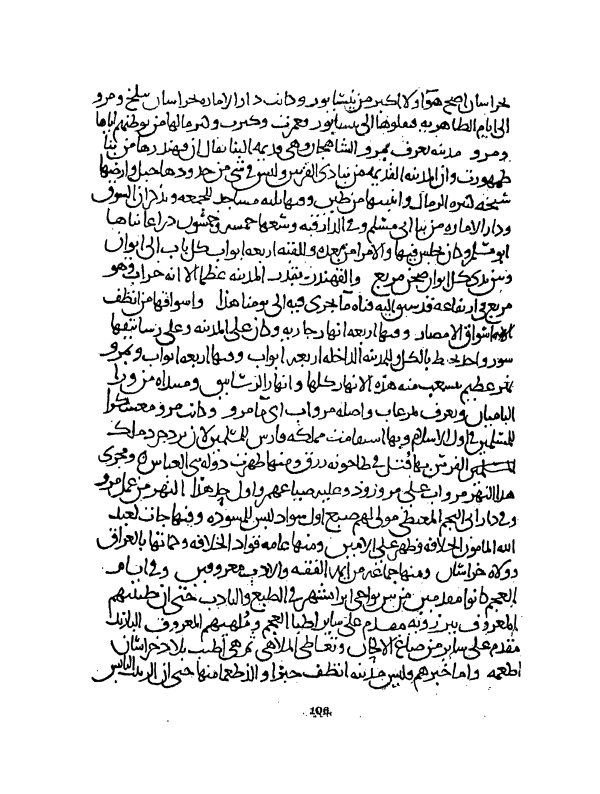 خراسان اصح هوا ولا اكبر من نيسابور وكانت دار الاماره بخراسان ببلخ ومرو
الى ايام الطاهريه فنقلوها الى نيسابور فعمرت وكبرت وكثر مالها من توطنهم اياها
ومرو مدينه تعرف بمرو الشاهجان وهي قديمه البنا يقال ان قهندزها من بنا
طهمورث وان المدينه القديمه من بنا ذى القرنين وليس في شي من حدودها جبل وارضها
سبخه كثيره الرمال وابنيتها من طين وفيها ثلثه مساجد للجمعه ويذكر ان السوق
ودار الاماره من بنا ابي مسلم وفي الدار قبه وسعها خمسه وخمسون ذراعا بناها
ابو مسلم وكان يجلس فيها والامرا من بعده وللقبه اربعه ابواب كل باب الى ايوان
وبين يدى كل ايوان صحن مربع والقهندز بقدر المدينه عظما الا انه خراب وهو
مربع في ارتفاعه قد سيق اليه قناه ما تجرى فيه الى يومنا هذا واسواقها من انظف
اسواق الامصار وفيها اربعه انهار جاريه وكان على المدينه وعلى رساتيقها
سور واحد يحيط بالكل وللمدينه الداخله اربعه ابواب وفيها اربعه ابواب وبمرو
نهر عظيم يتشعب منه هذه الانهار كلها وانهار الرساتيق ومبداه من ورا
الباميان ويعرف بمرغاب واصله مرو اب اى ما مرو وكانت مرو معسكرا
للمسلمين في اول الاسلام وبها استقامت مملكه فارس للمسلمين لان يزدجرد ملك
الفرس بها قتل في طاحونه زرق ومنها ظهرت دوله بني العباس ومجرى
هذا النهر مرواب على مرو روذ وعليه ضياعهم واول حد هذا النهر من عمل مرو
وفي دار ابي النجم المعيطى مولى لهم صبغ اول سواد لبس للمسوده وفيها جات لعبد
الله المامون الخلافه وظهر على الامين ومنها عامه قواد الخلافه وكتابها بالعراق
وولاه خراسان ومنها جماعه من ايمه الفقه والادب معروفين وفي ايام
العجم كانوا مقدمين من بين نواحى ايرانشهر في الطب والتادب حتى ان طبيبهم
المعروف ببرزويه مقدم على ساير اطبا العجم وملهيهم المعروف الباربد
مقدم على ساير من صاغ الالحان وتعاطى الملاهي ثم هي اطيب بلاد خراسان
اطعمه واما خبزهم فليس مدينه انظف خبزا والذ طعما منها حتى ان اليابس
106